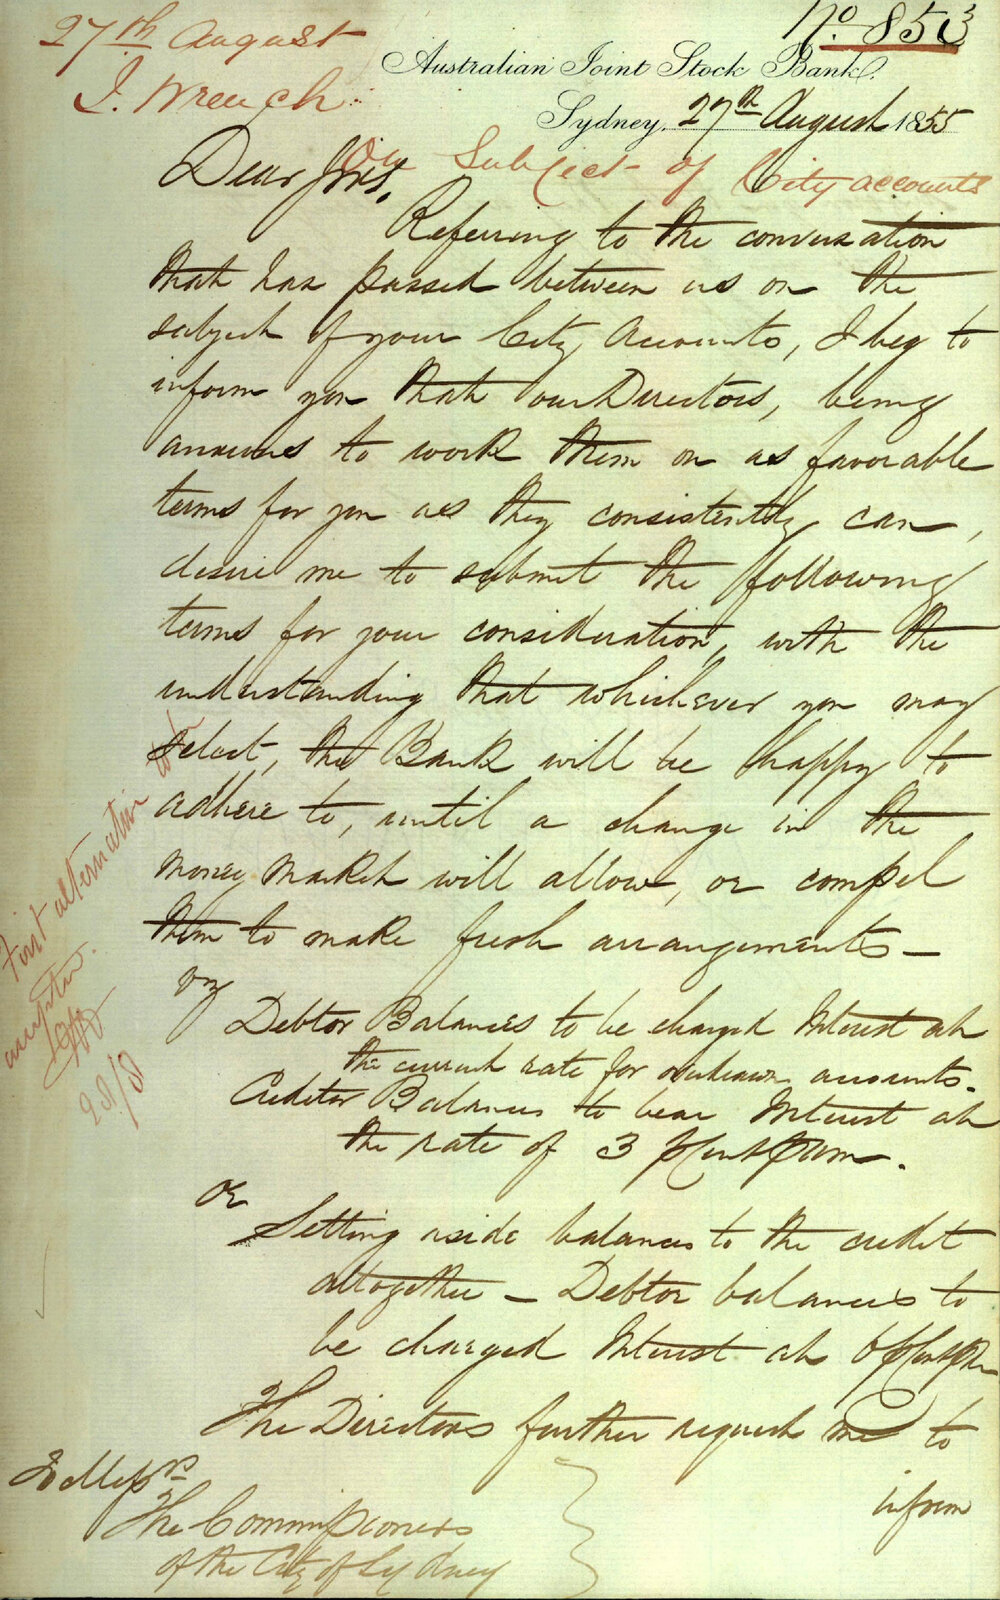 No. 853
27th August
J. Wrench
Australian Joint Stock Bank.
Sydney, 27th August 1855
On Subject of City accounts
Dear Sirs,
Referring to the conversation
that has passed between us on the
subject of your City Accounts, I beg to
inform you that our Directors, being
anxious to work them on as favorable
terms for you as they consistently can,
desire me to submit the following
terms for your consideration, with the
understanding that whichever you may
select, the Bank will be happy to
adhere to, until a change in the
money market will allow, or compel
them to make fresh arrangements –
viz
Debtor Balances to be charged Interest at
the current rate for overdrawn accounts.
Creditor Balances to bear Interest at
the rate of 3 p Cent p Ann.
or
Setting aside balances to the credit
altogether – Debtor balances to
be charged Interest at 6 p Cent p Ann
The Directors further request me to
inform
To Messrs
The Commissioners
of the City of Sydney
First alternative
accepted.
28/8